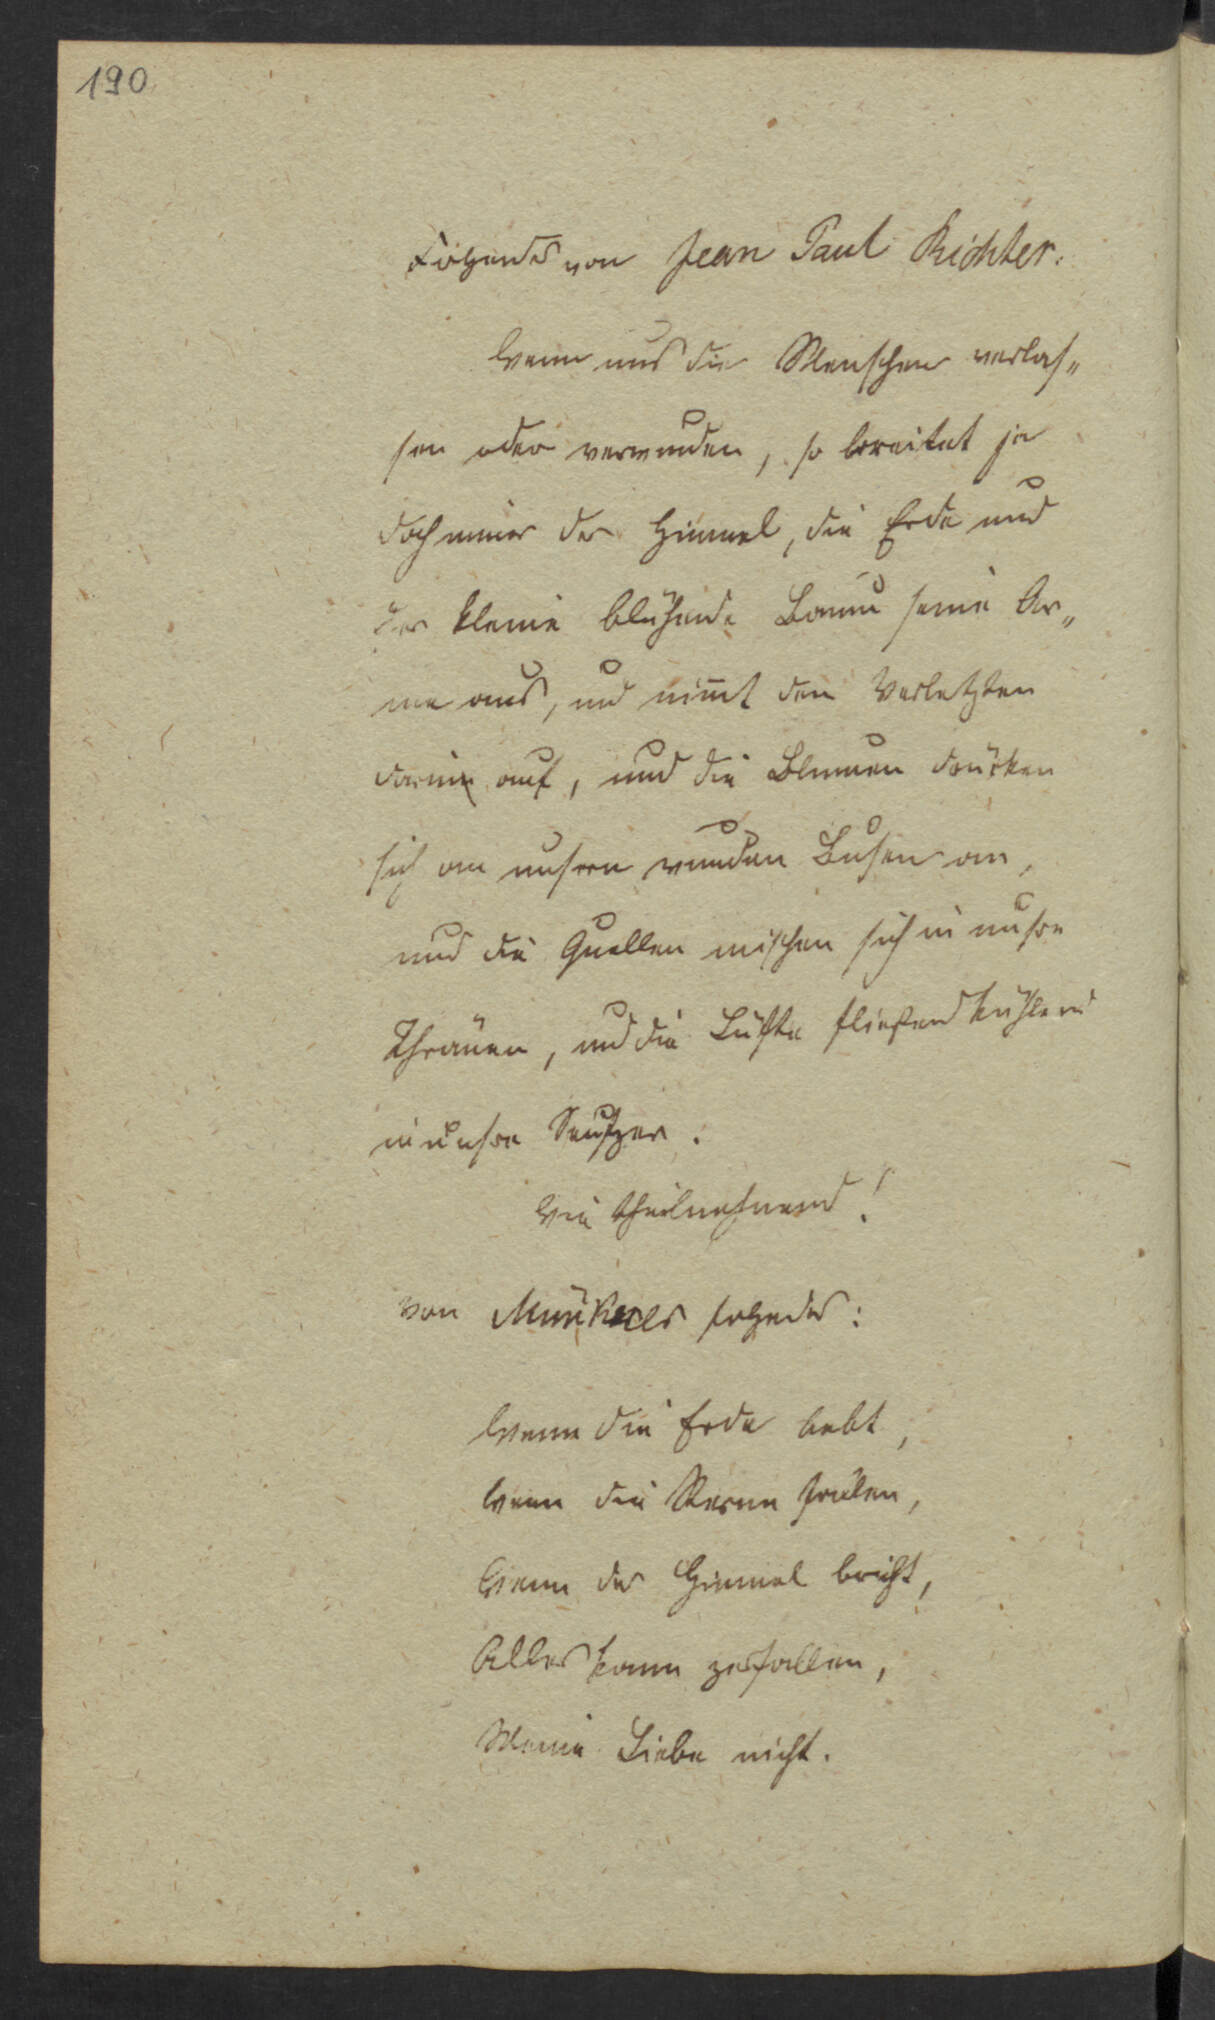 190
Folgendes von Jean Paul Richter.
Wenn uns die Menschen verlas„
sen oder verwunden, so breitet ja
doch immer der Himmel, die Erde und
der kleine blühende Baum seine Ar„
me aus, und nim̅t den Verletzten
darinn auf, und die Blumen drücken
sich an unsern wunden Busen an,
und die Quellen mischen sich in unsre
Thränen, und die Lüfte fließend kühlend
in unsre Seufzer.
Wie theilnehmend!
Von folgendes:
Wenn die Erde bebt,
Wenn die Sterne
Wenn der Himmel bricht,
Alles kann zerfallen,
Meine Liebe nicht.